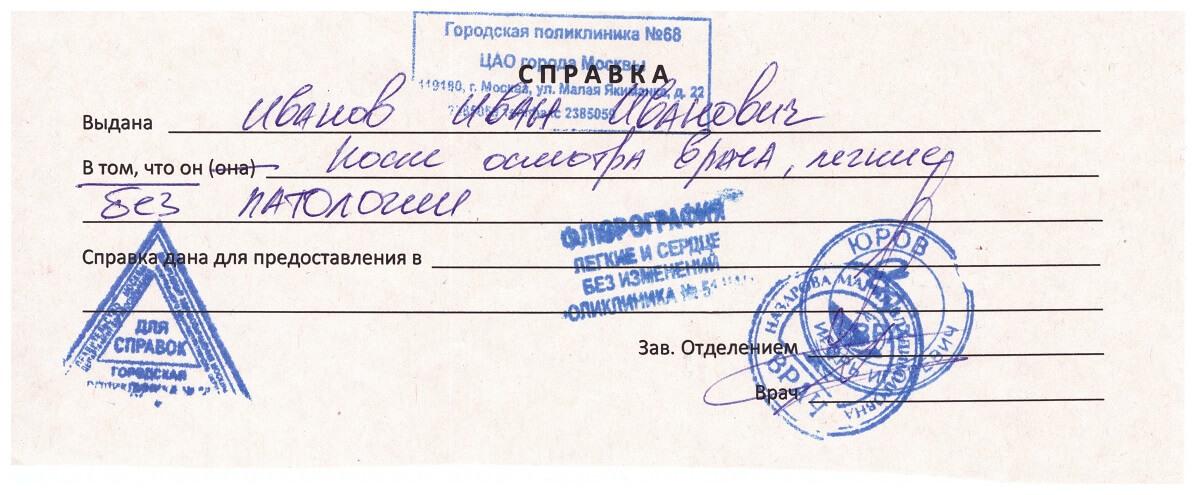 Городская поликлиника №68
ЦАО города Москвы
СПРАВКА
119180, г. Москва, ул. Малая Якиманка, д. 22
2385059
Выдана Иванов Иван Иванович
В том, что он (она) после осмотра врача, легкие
без патологии
ФЛЮРОГРАФИЯ
ЛЕГКИЕ И СЕРДЦЕ
БЕЗ ИЗМЕНЕНИЙ
ПОЛИКЛИНИКА № 51
Справка дана для предоставления в
ДЛЯ
СПРАВОК
ГОРОДСКАЯ
ПОЛИКЛИНИКА №
ЮРОВ
НАЗАРОВА
ВРАЧ
Зав. Отделением
Врач